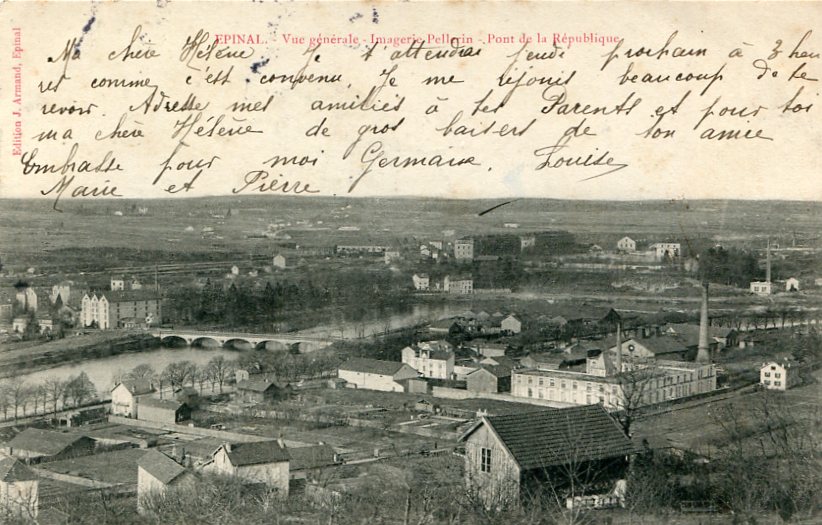 EPINAL. - Vue générale - Imagerie Pellerin - Pont de la République
Ma chère Hélène Je t'attendrai jeudi prochain à 3 heu
res comme c'est convenu, Je me réjouis beaucoup de te
revoir. Adresse mes amitiés à tes Parents et pour toi
ma chère Hélène de gros baisers de ton amie
Embrasse pour moi Germaine. Louise
Marie et Pierre
Edition J. Armand, Epinal